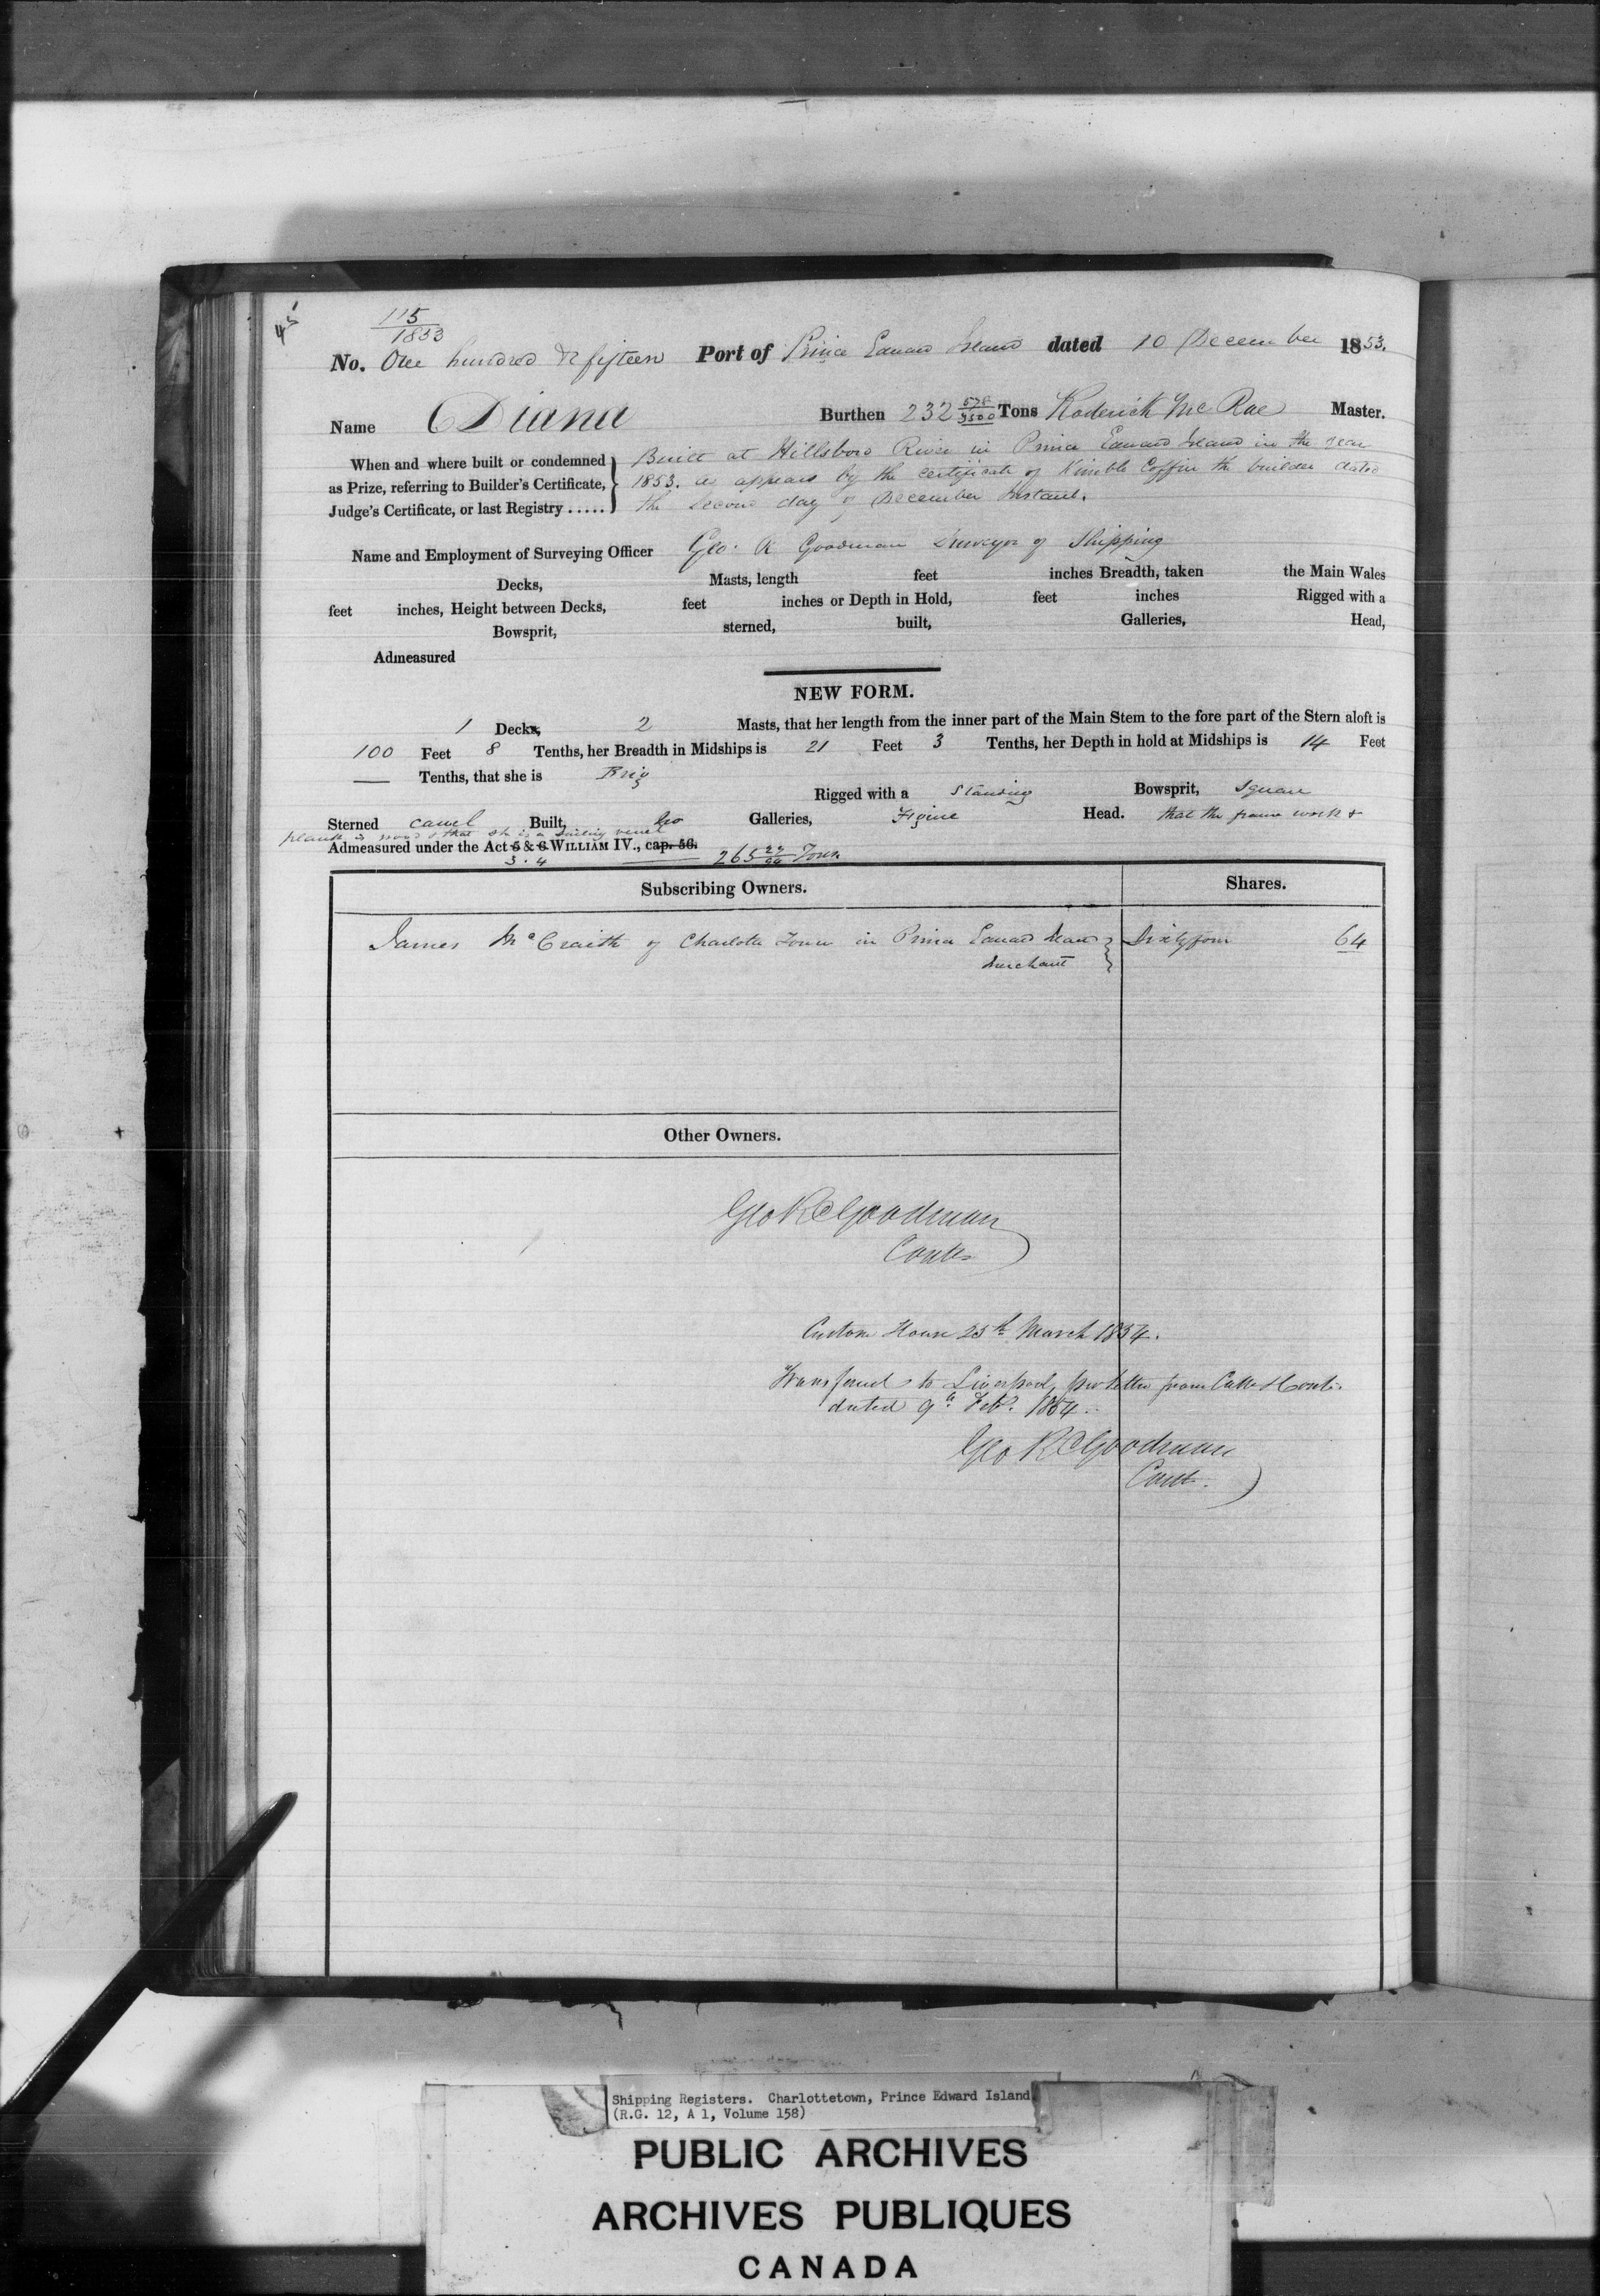 115
1853
No. One hundred & fifteen Port of Prince Edward Island dated 10 December 1853.
Name Diana Burthen 232 578/3500 Tons Roderick McRae Master.
When and where built or condemned as Prize, referring to Builder's Certificate, Judge's Certificate, or last Registry .....
Built at Hillsboro River in Prince Edward Island in the year
1853. as appears by the certificate of Kimble Coffin the builder dated
the second day of December Instant.
Name and Employment of Surveying Officer Geo. R Goodman Surveyor of Shipping
Decks, Masts, length feet inches Breadth, taken the Main Wales
feet inches, Height between Decks, feet inches or Depth in Hold, feet inches Rigged with a
Bowsprit, sterned, built, Galleries, Head,
Admeasured
NEW FORM.
1 Decks, 2 Masts, that her length from the inner part of the Main Stem to the fore part of the Stern aloft is
100 Feet 8 Tenths, her Breadth in Midships is 21 Feet 3 Tenths, her Depth in hold at Midships is 14 Feet
— Tenths, that she is Brig Rigged with a Standing Bowsprit, Square
Sterned carvel Built, No Galleries, Figure Head. that the frame work &
plank is wood & that she is a Sailing vessel
Admeasured under the Act 5 & 6 WILLIAM IV., cap. 56.
3 . 4 265 Tons
Subscribing Owners. Shares.
James McCraith of Charlotte Town in Prince Edward Island Sixty four 64
Merchant
Other Owners.
Geo R Goodman
Contr
Custom House 25th March 1854.
Transferred to Liverpool, per letter from
dated 9th Feby. 1854.
Geo R Goodman
Contr.
Shipping Registers. Charlottetown, Prince Edward Island
(R.G. 12, A 1, Volume 158)
PUBLIC ARCHIVES
ARCHIVES PUBLIQUES
CANADA